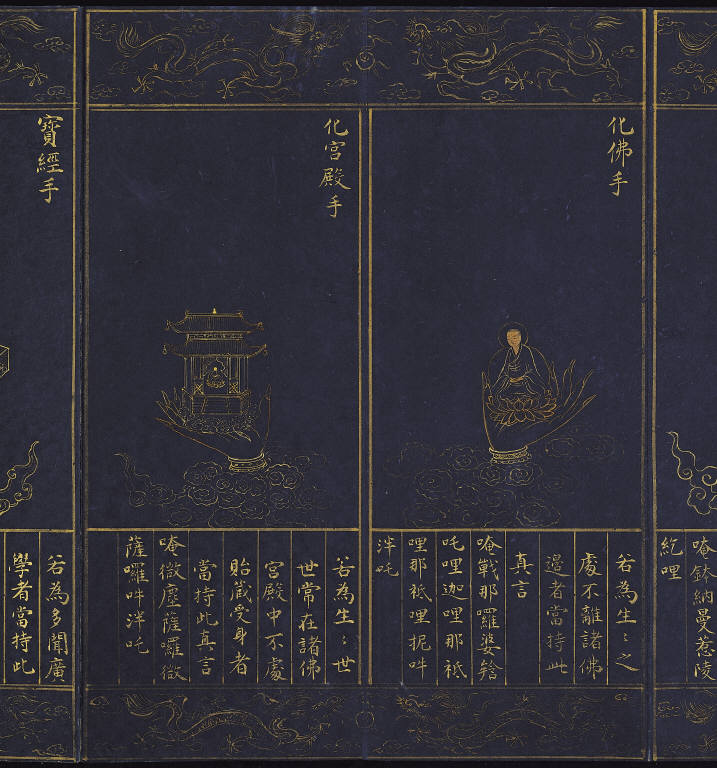 唵鉢納曼惹陵
紇哩
化佛手
若為生〻之
處不離諸佛
邉者當持此
真言
唵戰那囉婆𤚥
吒哩迦哩那祗
哩那祗哩抳吽
泮吒
化宮殿手
若為生〻世
世常在諸佛
宮殿中不處
胎藏受身者
當持此真言
唵微薩囉微
薩囉吽泮吒
寶經手
若為多聞廣
學者當持此